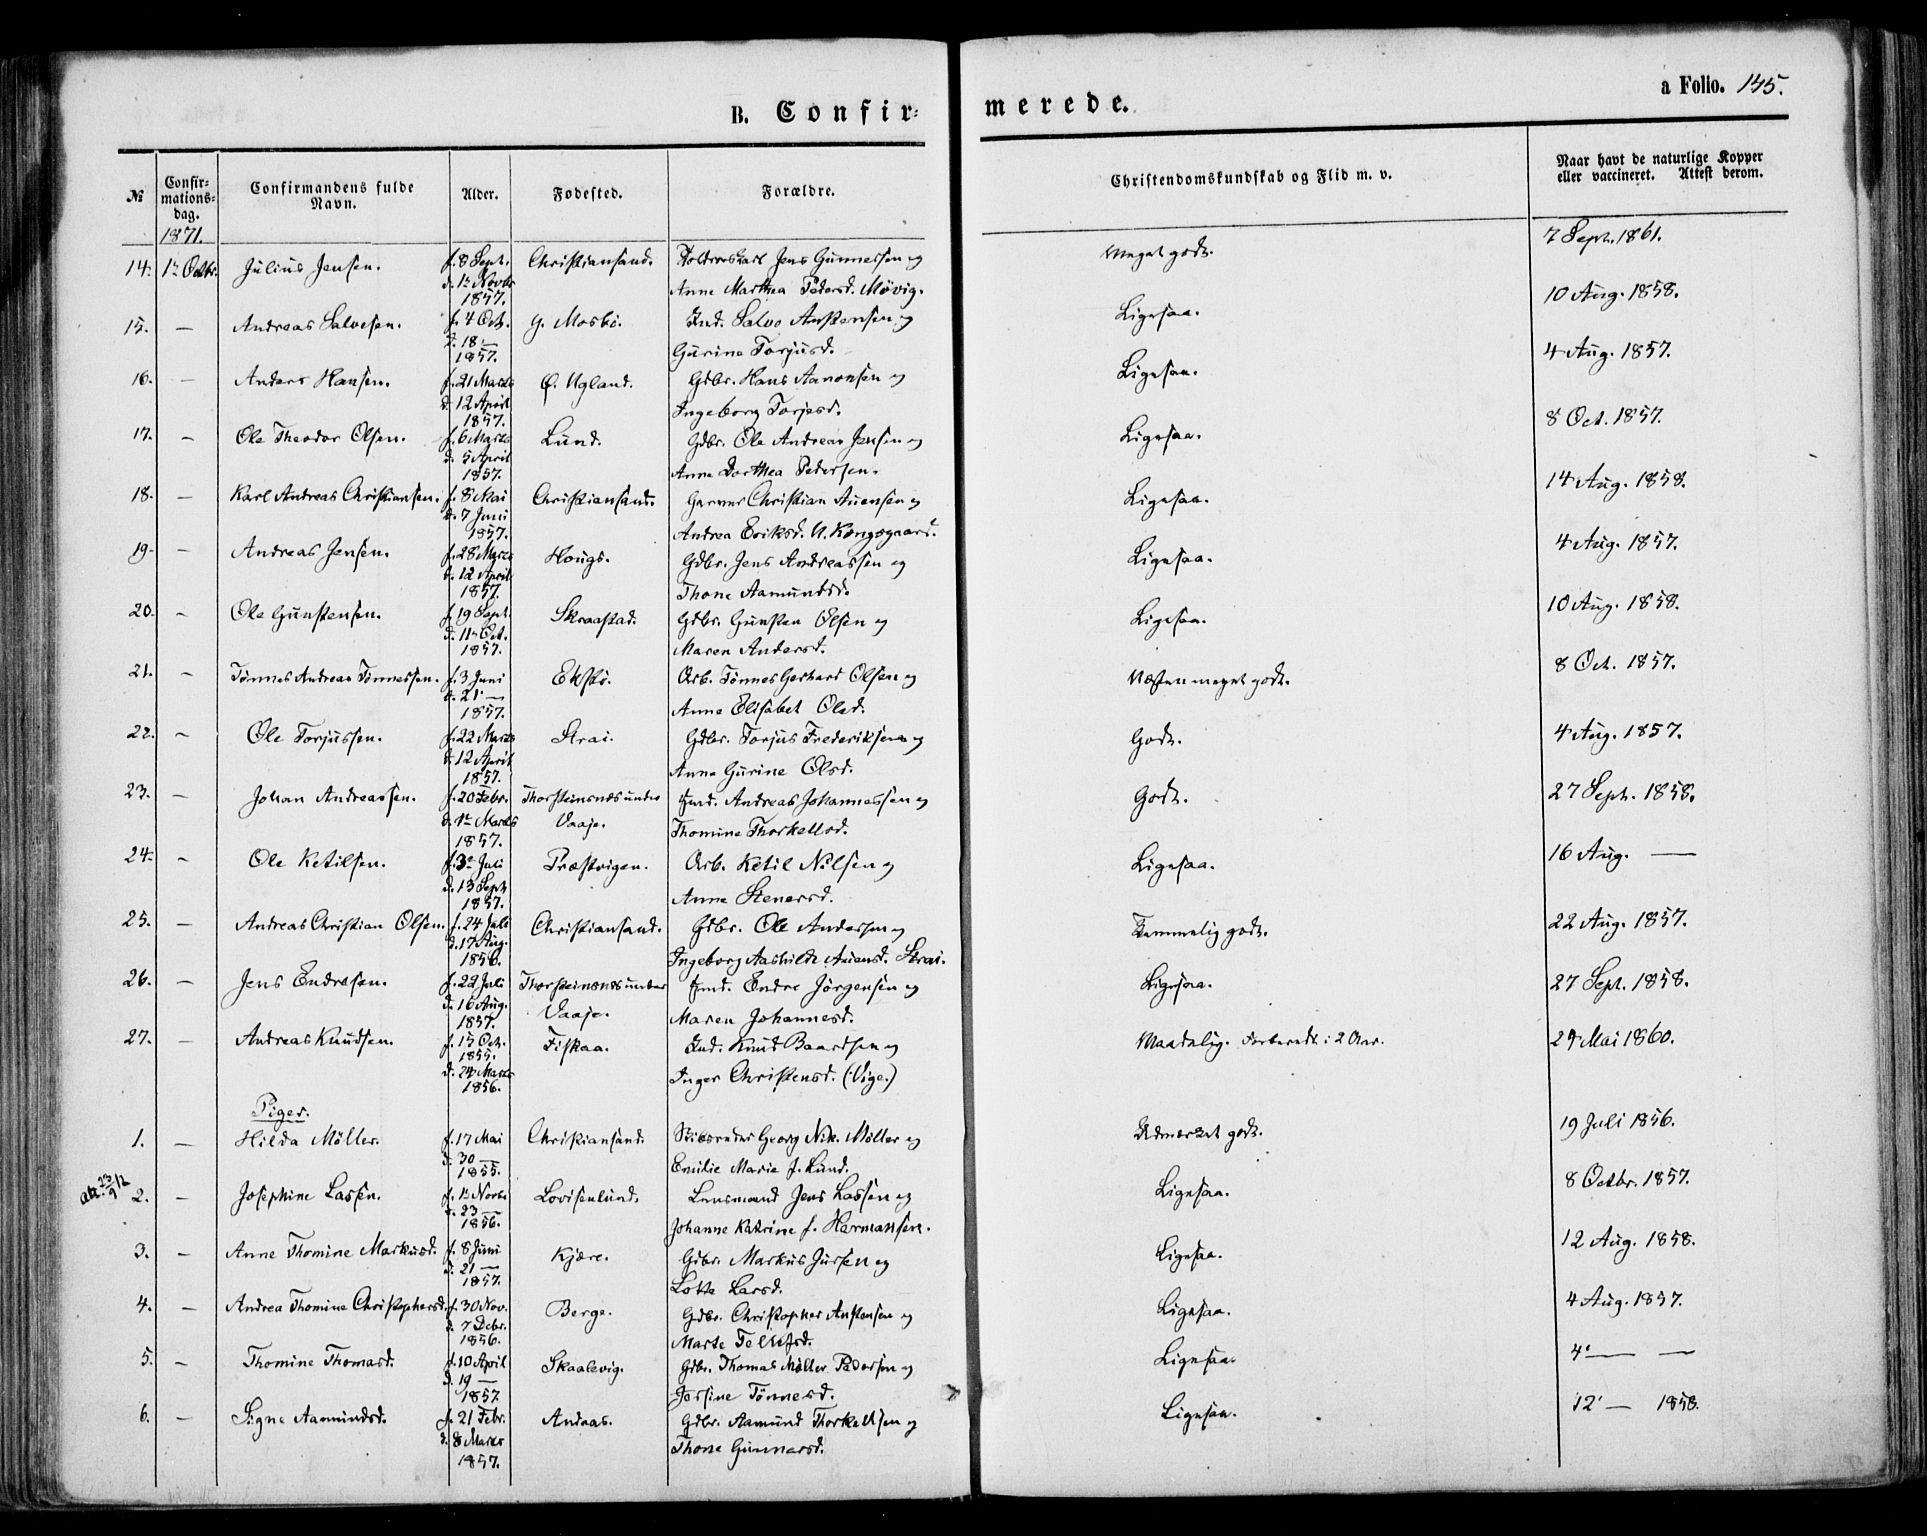 a Folio. 145.
B. Confir-
merede.
№
Confir-
mations-
dag.
Confirmandens fulde
Navn.
Alder.
Fødested.
Forældre.
Christendomskundskab og Flid m. v.
Naar havt de naturlige Kopper
eller vaccineret. Attest derom.
1871.
14. 1ste Octbr. Julius Jensen. f. 8 Sept. Christiansand. Jens Gunnersen og Meget godt. 7 Sept. 1861.
d. 1ste Novbr Anne Marthea Pedersd. Møvig.
1857.
15. — Andreas Salvesen. f. 4 Oct. g. Mosbö. Ind. Salve Anstensen og Ligesaa. 10 Aug. 1858.
d. 18 — Gurine Torjusd.
1857.
16. — Anders Hansen. f. 21 Marts Ø. Ugland. Gdbr. Hans Aanonsen og Ligesaa. 4 Aug. 1857.
d. 12 April Ingeborg Torjesd.
1857.
17. — Ole Theodor Olsen. f. 6 Marts Lund. Gdbr. Ole Andreas Jensen og Ligesaa. 8 Oct. 1857.
d. 5 April Anne Dorthea Pedersen.
1857.
18. — Karl Andreas Christiansen. f. 8 Mai Christiansand. Garver Christian Auensen og Ligesaa. 14 Aug. 1858.
d. 7 Juni Andrea Eriksd. N. Kongsgaard.
1857.
19. — Andreas Jensen. f. 28 Marts Hougs. Gdbr. Jens Andreassen og Ligesaa. 4 Aug. 1857.
d. 12 April Thone Aamundsd.
1857.
20. — Ole Gunstensen. f. 19 Sept. Skraastad. Gdbr. Gunsten Olsen og Ligesaa. 10 Aug. 1858.
d. 11te Oct. Maren Andersd.
1857.
21. — Tönnes Andreas Tönnessen. f. 3 Juni Ekstö. Arb. Tönnes Gerhard Olsen og Næsten meget godt. 8 Oct. 1857.
d. 21 — Anne Elisabet Olsd.
1857.
22. — Ole Torjussen. f. 22 Marts Strai. Gdbr. Torjus Frederiksen og Godt. 4 Aug. 1857.
d. 12 April Anne Gurine Olsd.
1857.
23. — Johan Andreassen. f. 20 Febr. Thorsteinsnes under Hmd. Andreas Johannessen og Godt. 27 Sept. 1858.
d. 1ste Marts Vaaje. Thomine Thorkellsd.
1857.
24. — Ole Ketilsen. f. 3 Juli Præstvigen. Arb. Ketil Nilsen og Ligesaa. 16 Aug. —
d. 13 Sept. Anne Stenersd.
1857.
25. — Andreas Christian Olsen. f. 24 Juli Christiansand. Gdbr. Ole Andersen og Temmelig godt. 22 Aug. 1857.
d. 17 Aug. Ingeborg Aashilde Auensd. Strai.
1856.
26. — Jens Endresen. f. 22 Juli Thorsteinsnes under Hmd. Endre Jörgensen og Ligesaa. 27 Sept. 1858.
d. 16 Aug. Vaaje. Maren Johannesd.
1857.
27. — Andreas Knudsen. f. 15 Oct. Fiskaa. Ind. Knud Baardsen og Maadelig. Forberedt i 2 Aar. 24 Mai 1860.
1855.
d. 24 Marts Inger Christensd. (Vige.)
1856.
Piger.
1. — Hilda Möller. f. 17 Mai Christiansand. Skibsreder Georg Nik. Möller og Udmærket godt. 19 Juli 1856.
d. 30 — Emilie Marie f. Lund.
1855.
att. 23/9 12
2. — Josephine Lassen. f. 1ste Novbr Lovisenlund. Lensmand Jens Lassen og Ligesaa. 8 Octbr. 1857.
d. 23 — Johanne Katrine f. Hermansen.
1856.
3. — Anne Thomine Markusd. f. 8 Juni Kjære. Gdbr. Markus Jursen og Ligesaa. 12 Aug. 1858.
d. 21 — Lotte Larsd.
1857.
4. — Andrea Thomine Christophersd. f. 30 Nov. Berge. Gdbr. Christopher Anstensen og Ligesaa. 4 Aug. 1857.
d. 7 Debr. Marte Tellefsd.
1856.
5. — Thomine Thomasd. f. 10 April Skaalevig. Gdbr. Thomas Möller Pedersen og Ligesaa. 4 — —
d. 19 — Jersine Tönnesd.
1857
6. — Signe Aamundsd. f. 21 Febr. Andaas. Gdbr. Aamund Thorkellsen og Ligesaa. 12 — 1858.
d. 8 Marts Thone Gunnarsd.
1857.